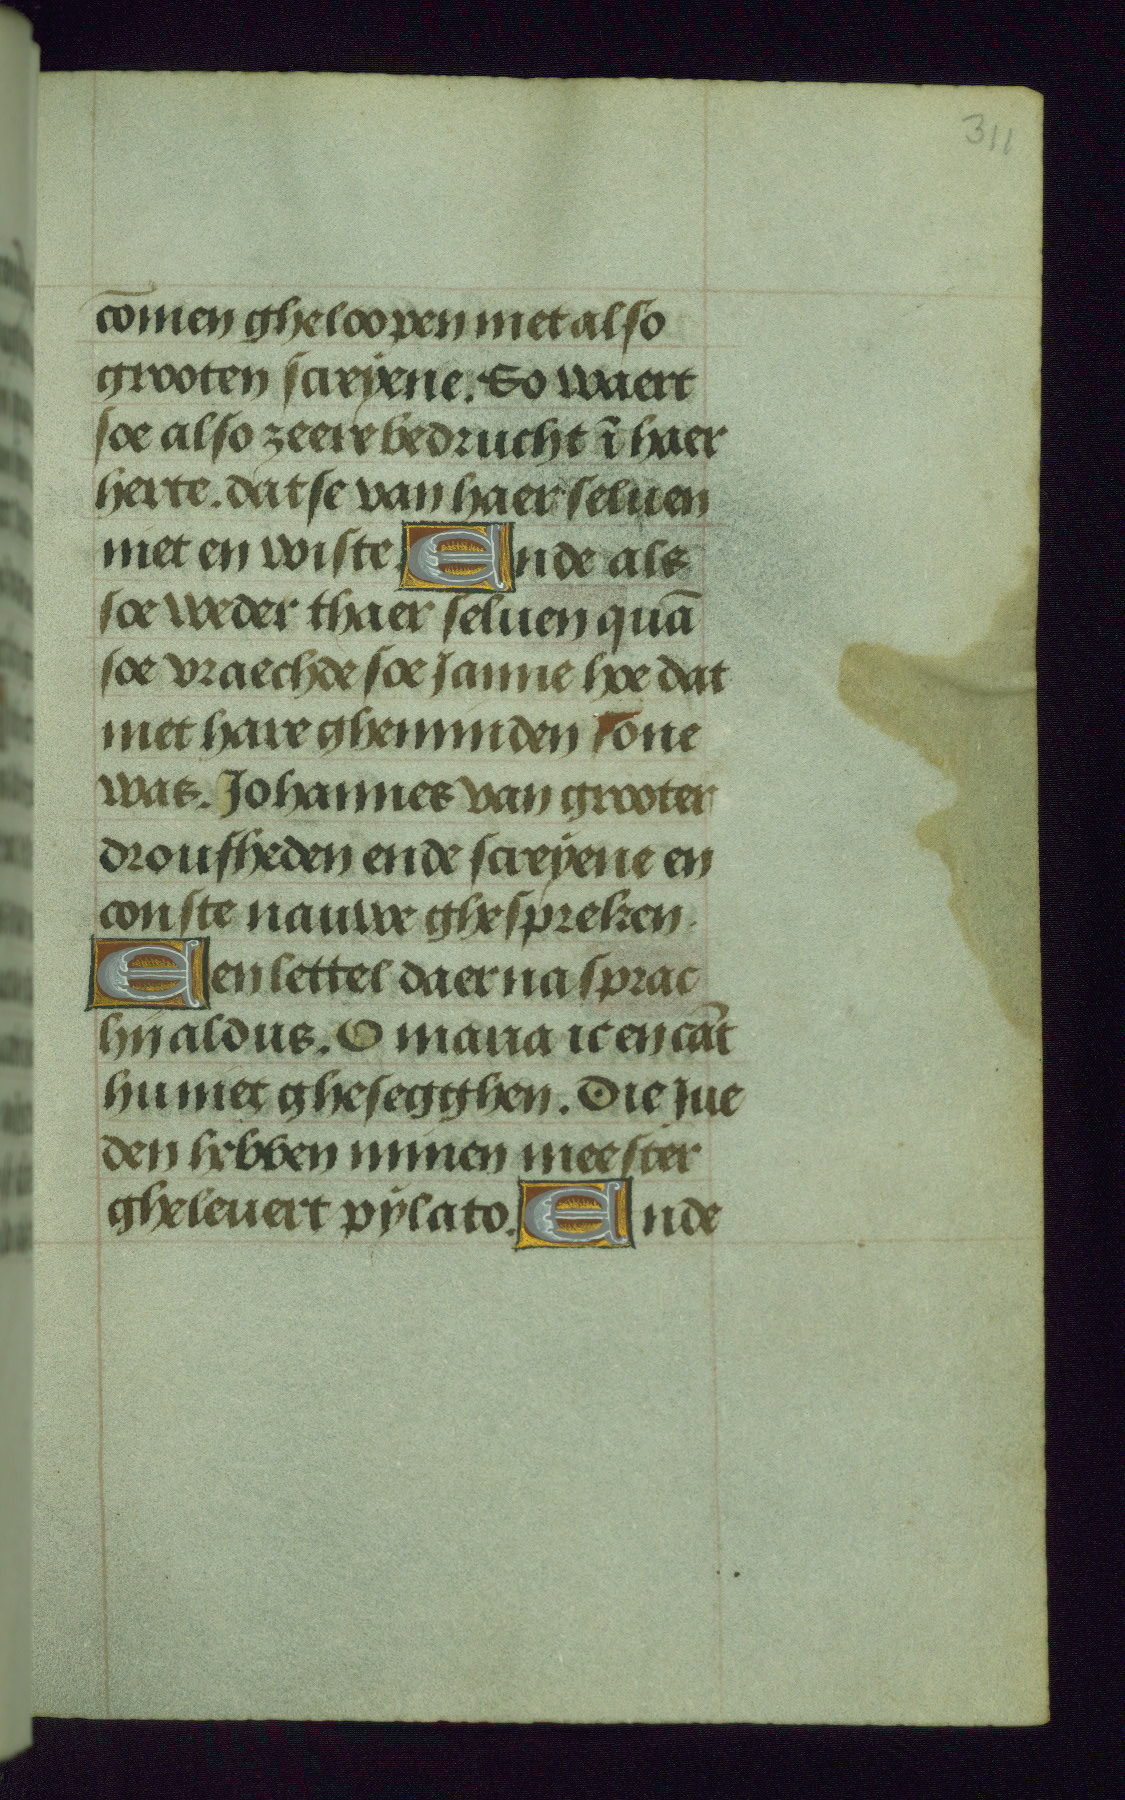 311
cōmen gheloopen met also
grooten screÿene. So waert
soe also zeere bedrucht ī haer
herte. dat se van haer seluen
niet en wiste. Ende als
soe weder thaer seluen quā
soe vraechde soe Janne hoe dat
met hare gheminden sone
was. Johannes van grooter
droufheden ende screÿene en
conste nauwe ghespreken.
Een lettel daer na sprac
hij aldus. O maria ic en cāt
hu niet ghesegghen. Die jue
den hebben minen meester
gheleuert pÿlato. Ende